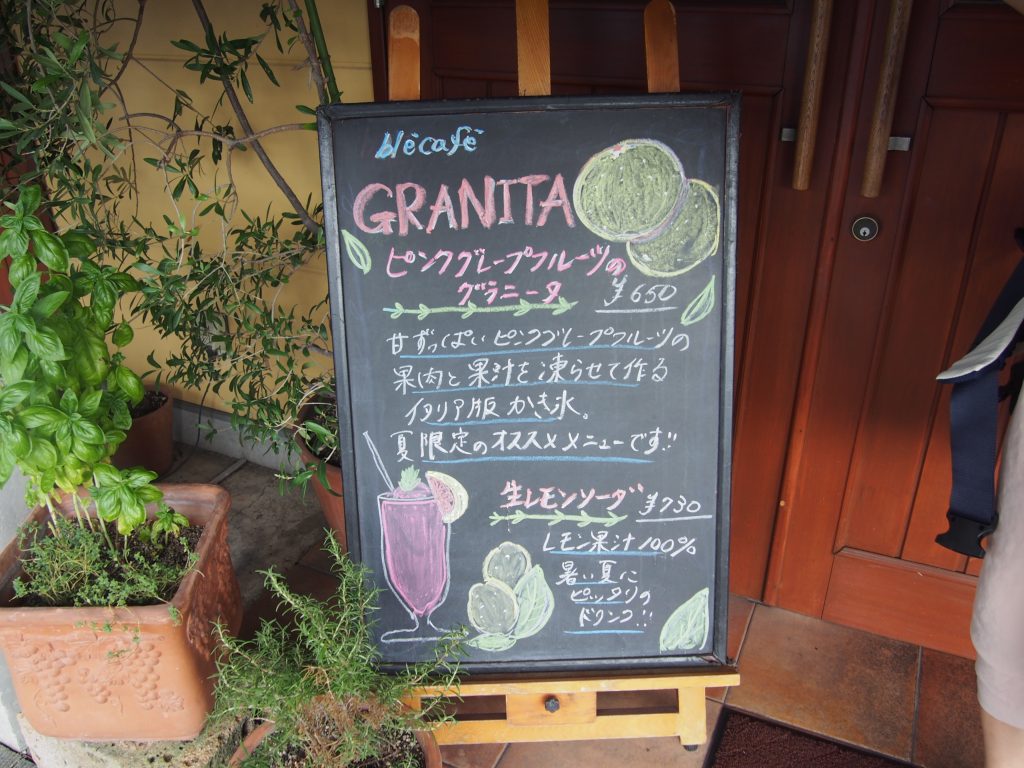 blé café
GRANITA
ピンクグレープフルーツの
グラニータ ¥650
甘ずっぱいピンクグレープフルーツの
果肉と果汁を凍らせて作る
イタリア版かき氷。
夏限定のオススメメニューです!!
生レモンソーダ ¥730
レモン果汁100%
暑い夏に
ピッタリの
ドリンク!!